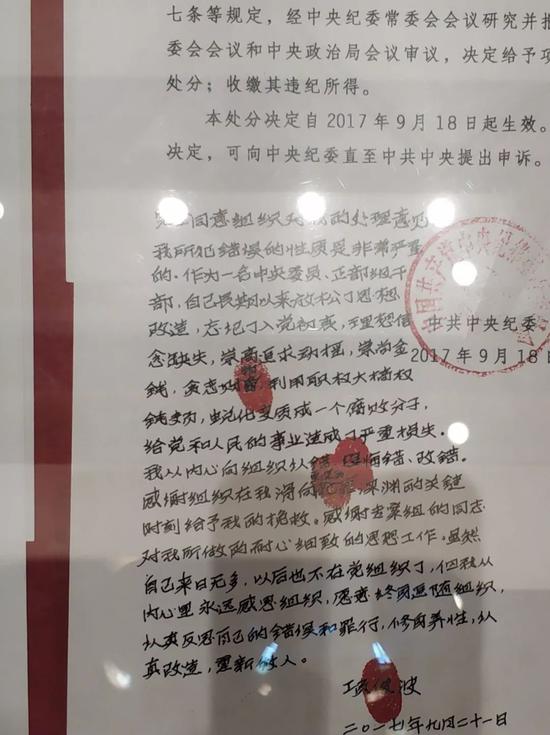 七条等规定，经中央纪委常委会会议研究并报
委会会议和中央政治局会议审议，决定给予项
处分；收缴其违纪所得。
本处分决定自2017年9月18日起生效。
决定，可向中央纪委直至中共中央提出申诉。
同意组织对我的处理意见
我所犯错误的性质是非常严重
的。作为一名中央委员、正部级干
部，自己长期以来放松了思想
改造，忘记了入党初衷，理想信
念缺失，崇高追求动摇，崇尚金
钱，贪恋财富，利用职权大搞权
钱交易，蜕化变质成一个腐败分子，
给党和人民的事业造成了严重损失。
我从内心向组织认错、悔错、改错。
感谢组织在我滑向犯罪深渊的关键
时刻给予我的挽救。感谢专案组的同志
对我所做的耐心细致的思想工作。虽然
自己来日无多，以后也不在党组织了，但我从
内心里永远感恩组织，愿意终身追随组织，
认真反思自己的错误和罪行，修身养性，认
真改造，重新做人。
中国共产党中央纪律
中共中央纪委
2017年9月18日
项俊波
二〇一七年九月二十一日